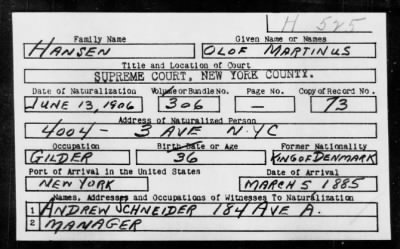 H 525
Family Name Given Name or Names
HANSEN OLOF MARTINUS
Title and Location of Court
SUPREME COURT, NEW YORK COUNTY.
Date of Naturalization Volume or Bundle No. Page No. Copy of Record No.
JUNE 13, 1906 306 — 73
Address of Naturalized Person
4004 - 3 AVE N.Y.C
Occupation Birth Date or Age Former Nationality
GILDER 36 KING OF DENMARK
Port of Arrival in the United States Date of Arrival
NEW YORK MARCH 5 1885
Names, Addresses and Occupations of Witnesses To Naturalization
1 ANDREW SCHNEIDER 184 AVE A.
2 MANAGER